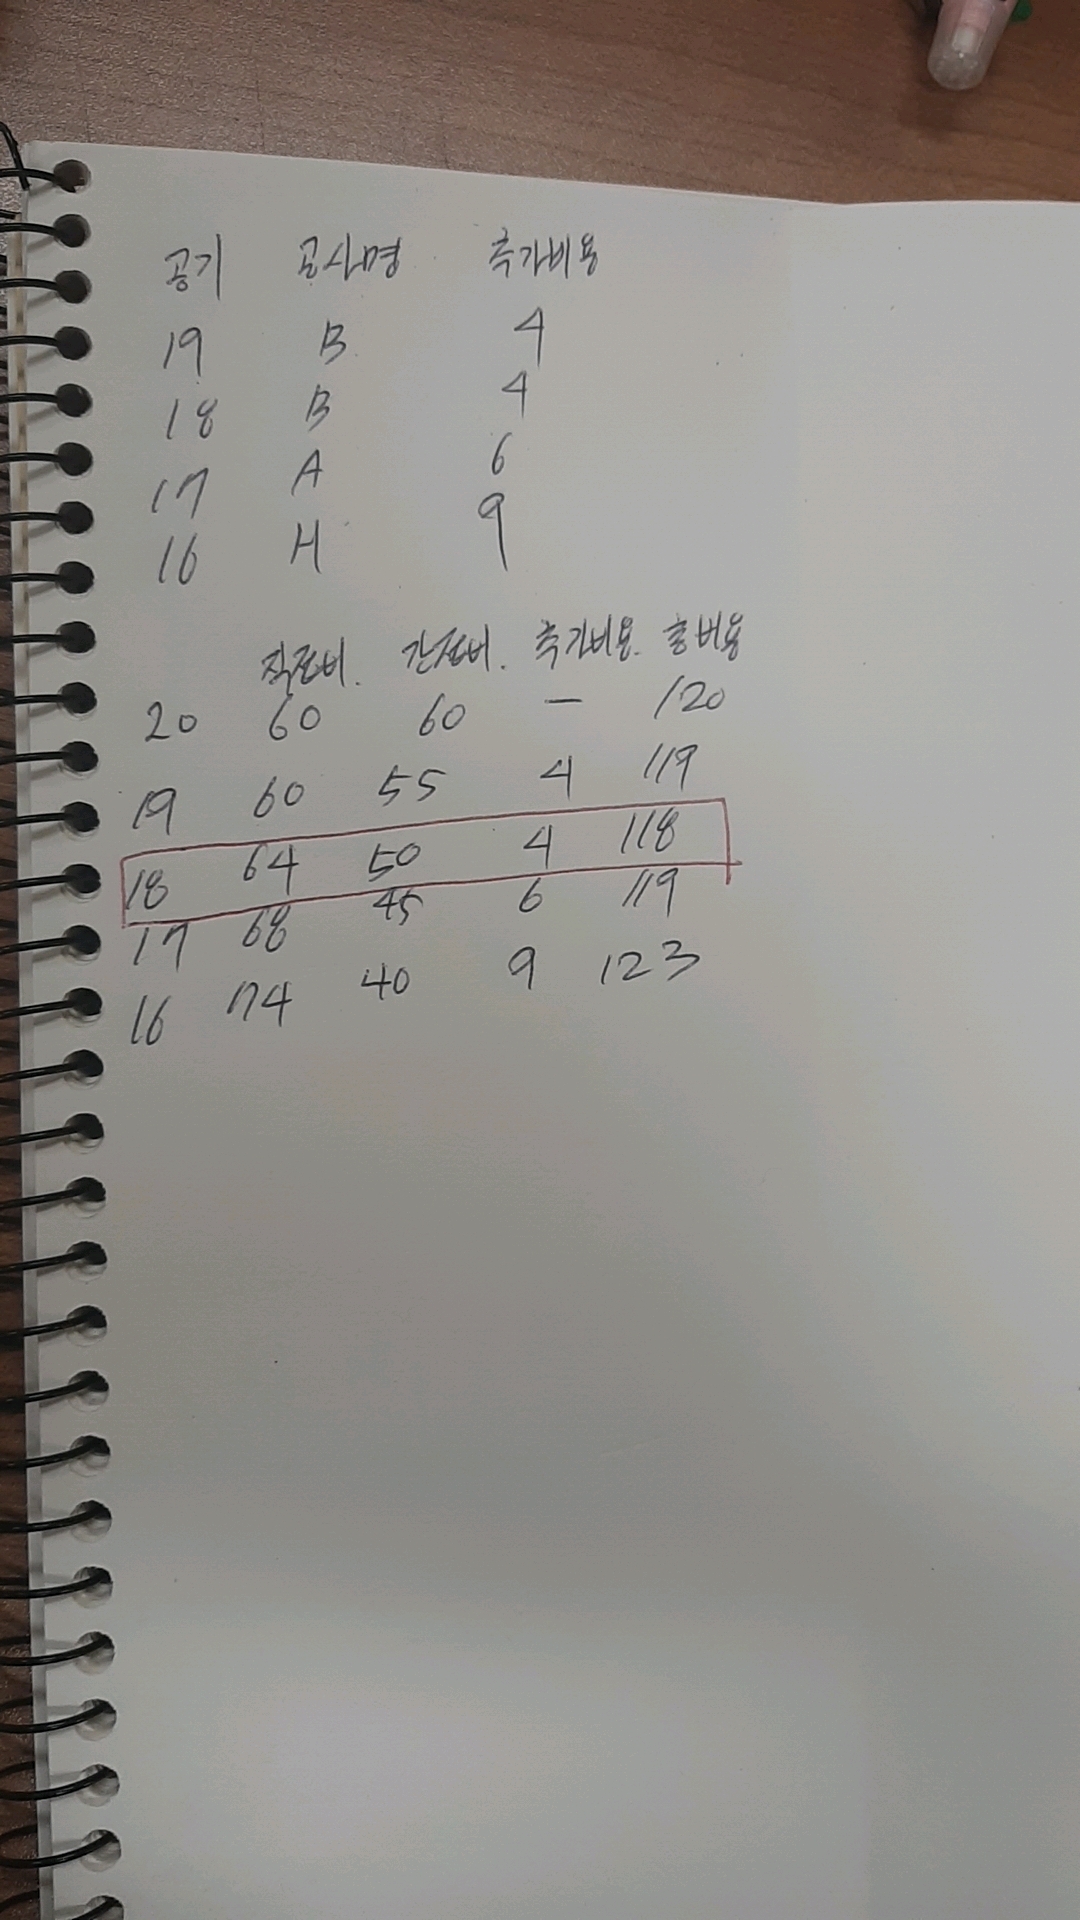 공기 공사명 추가비용
19 B 4
18 B 4
17 A 6
16 H 9
직접비. 간접비. 추가비용. 총비용
20 60 60 - 120
19 60 55 4 119
18 64 50 4 118
17 68 45 6 119
16 74 40 9 123